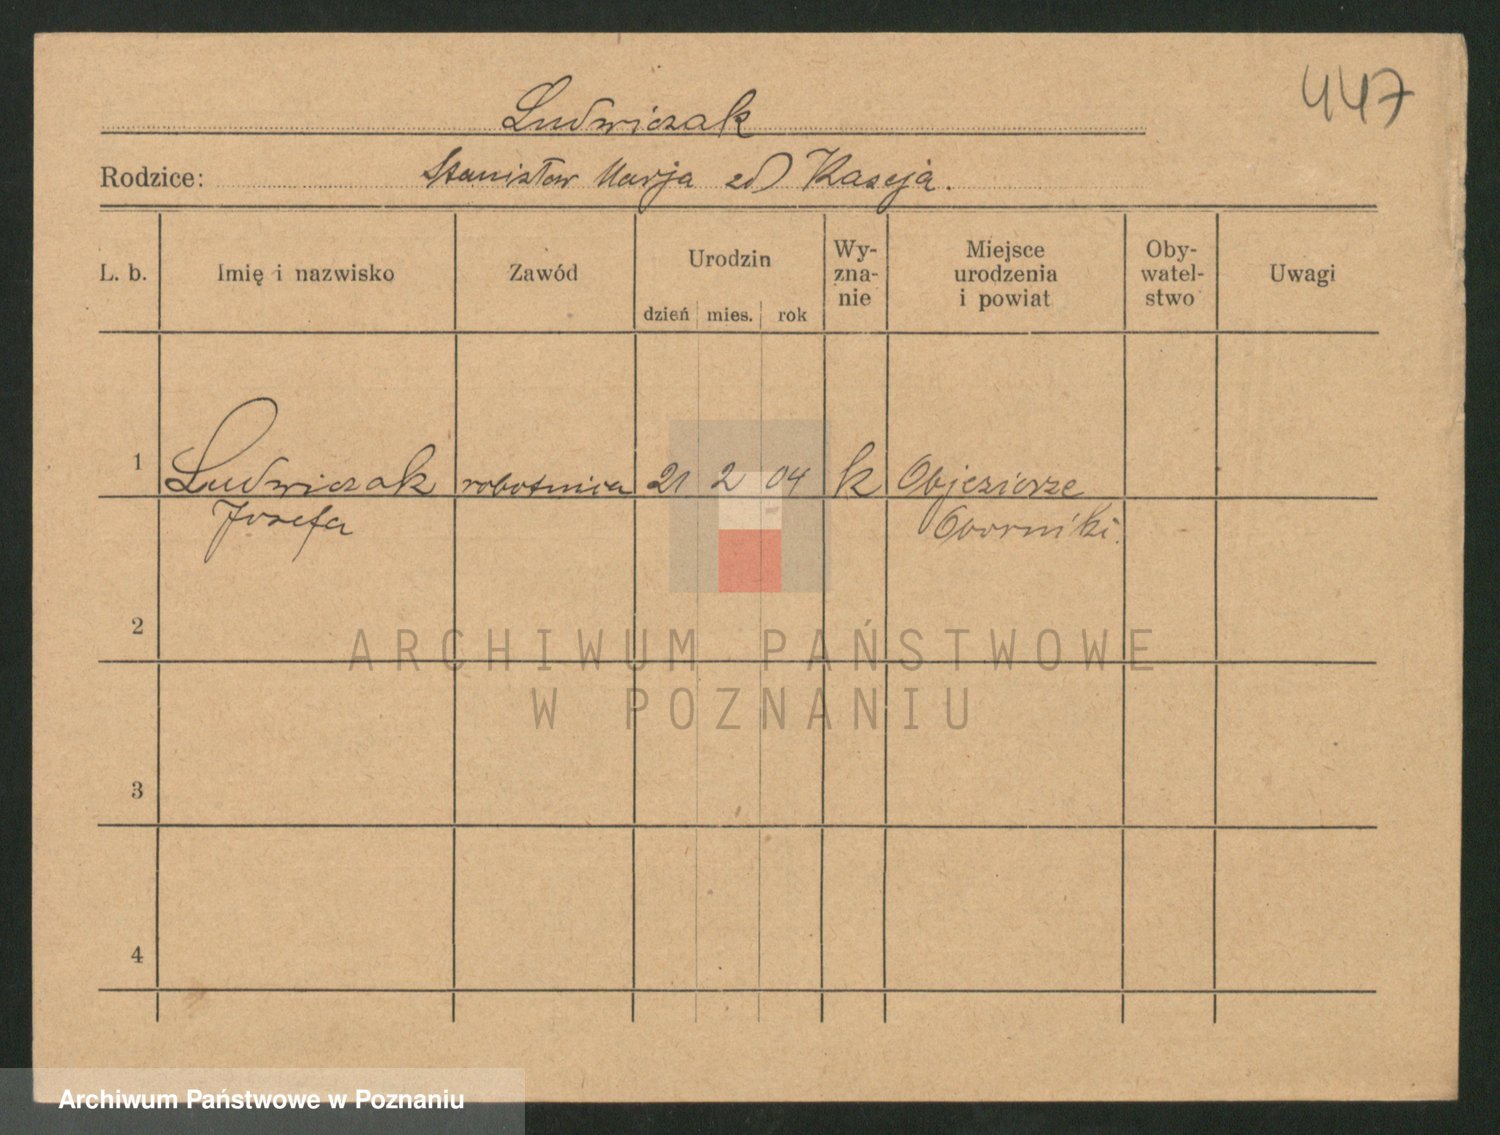 447
Ludwiczak
Rodzice: Stanisław Marja zd Kaseja.
L. b. Imię i nazwisko Zawód Urodzin dzień mies. rok Wy-
zna-
nie Miejsce
urodzenia
i powiat Oby-
watel-
stwo Uwagi
1 Ludwiczak robotnica 21 2 04 k Objezierze
Józefa Oborniki.
2
ARCHIWUM PAŃSTWOWE
W POZNANIU
3
4
Archiwum Państwowe w Poznaniu